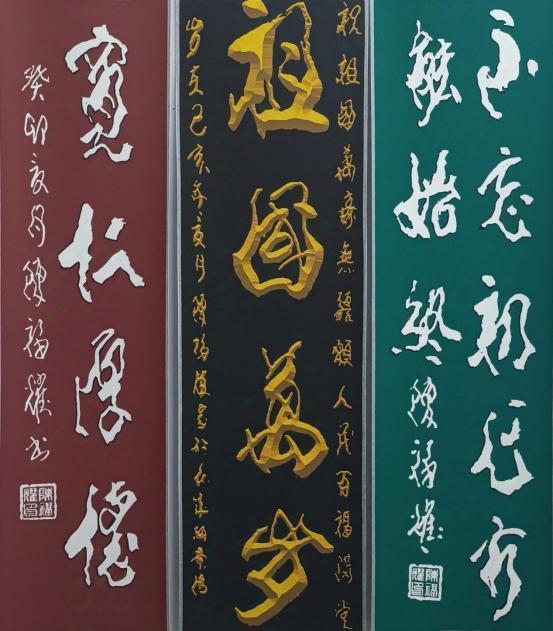 不忘初心方
能始終
陳福耀
陳福耀印
祝祖國萬壽無疆願人民百福滿堂
祖國萬歲
歲在己亥年亥月陳福耀書於
寬厚德
癸卯亥月陳福耀书
陳福耀印